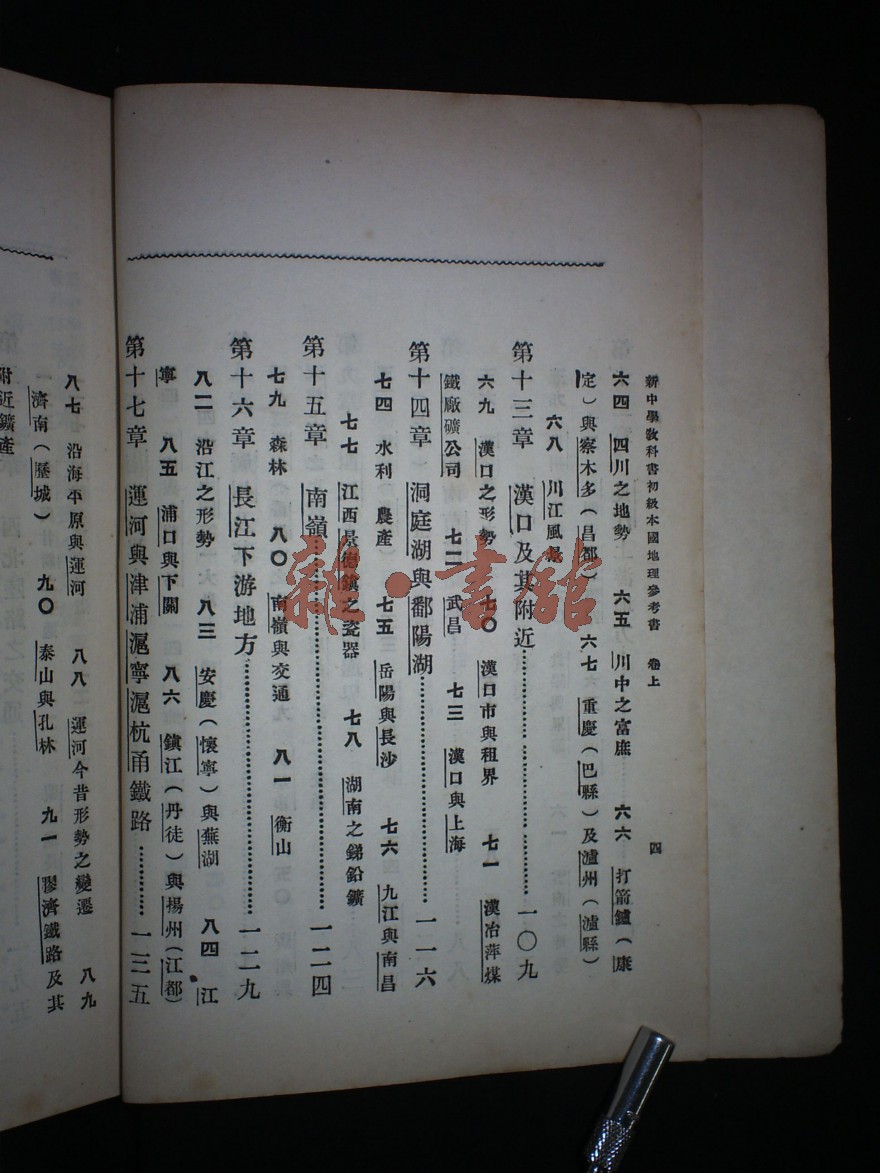 新中學教科書初級本國地理參考書 卷上 四
六四 四川之地勢 六五 川中之富庶 六六 打箭鑪(康
定)與察木多(昌都) 六七 重慶(巴縣)及瀘州(瀘縣)
六八 川江風景
第十三章 漢口及其附近 一〇九
六九 漢口之形勢 七〇 漢口市與租界 七一 漢冶萍煤
鐵廠礦公司 七二 武昌 七三 漢口與上海
第十四章 洞庭湖與鄱陽湖 一一六
七四 水利 農產 七五 岳陽與長沙 七六 九江與南昌
七七 江西景德鎮之瓷器 七八 湖南之銻鉛鑛
第十五章 南嶺 一二四
七九 森林 八〇 南嶺與交通 八一 衡山
第十六章 長江下游地方 一二九
八二 沿江之形勢 八三 安慶(懷寧)與蕪湖 八四 江
寧 八五 浦口與下關 八六 鎮江(丹徒)與揚州(江都)
第十七章 運河與津浦滬寧滬杭甬鐵路 一三五
八七 沿海平原與運河 八八 運河今昔形勢之變遷 八九
濟南(歷城) 九〇 泰山與孔林 九一 膠濟鐵路及其
附近鑛產
雜·書館